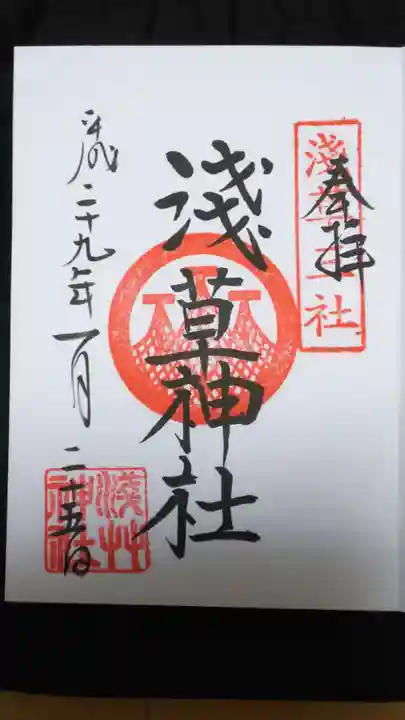 奉拝
淺草三社
淺草神社
平成二十九年一月二十五日
淺艸神社